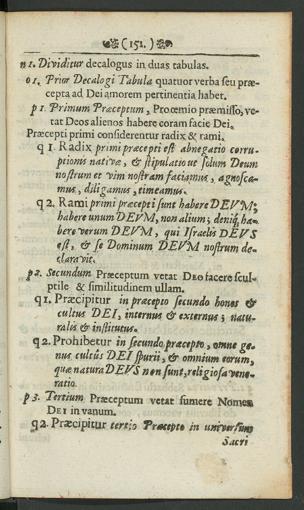 (152.)
n 1. Dividitur decalogus in duas tabulas.
o 1. Prior Decalogi Tabula quatuor verba seu præ-
cepta ad Dei amorem pertinentia habet.
p 1. Primum Præceptum, Prooemio præmisso, ve-
tat Deos alienos habere coram facie Dei.
Præcepti primi considerentur radix & rami.
q 1. Radix primi præcepti est abnegatio corru-
ptionis nativæ, & stipulatio ut solum Deum
nostrum et vim nostram faciamus, agnosca-
mus, diligamus, timeamus.
q 2. Rami primi præcepti sunt habere DEVM;
habere unum DEVM, non alium; deniq, ha-
bere verum DEVM, qui Israelis DEVS
est, & se Dominum DEVM nostrum de-
claravit.
p 2. Secundum Præceptum vetat DEO facere scul-
ptile & similitudinem ullam.
q 1. Præcipitur in præcepto secundo honos &
cultus DEI, internus & externus; natu-
ralis & institutus.
q 2. Prohibetur in secundo præcepto, omne ge-
nus cultûs DEI spurii, & omnium eorum,
quæ natura DEVS non sunt, religiosa vene-
ratio.
p 3. Tertium Præceptum vetat sumere Nomen
DEI in vanum.
q 2. Præcipitur tertio Præcepto in universum
Sacri